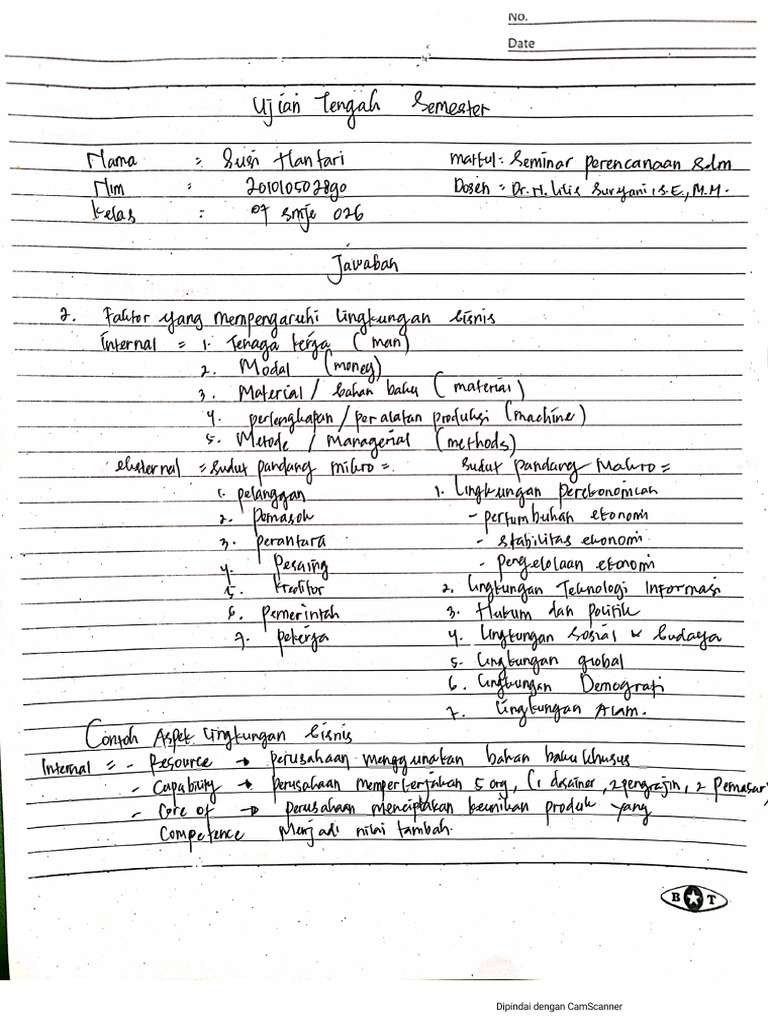 No.
Date
Ujian Tengah Semester
Nama : Susi Hantari Matkul : Seminar perencanaan Sdm
Nim : 201010502890 Dosen : Dr. H. Lilis Suryani, S.E., M.M.
Kelas : 07 smje 026
Jawaban
2. Faktor yang mempengaruhi lingkungan bisnis
Internal = 1. Tenaga kerja (man)
2. Modal (money)
3. Material / bahan baku (material)
4. perlengkapan / peralatan produksi (machine)
5. Metode / Managerial (methods)
eksternal = Sudut pandang mikro = Sudut pandang Makro =
1. pelanggan 1. Lingkungan perekonomian
2. Pemasok - pertumbuhan ekonomi
3. perantara - stabilitas ekonomi
4. Pesaing - pengelolaan ekonomi
5. kreditur 2. Lingkungan Teknologi Informasi
6. pemerintah 3. Hukum dan politik
7. pekerja 4. Lingkungan Sosial & budaya
5. Lingkungan global
6. Lingkungan Demografi
7. Lingkungan Alam.
Contoh Aspek Lingkungan bisnis
Internal = - Resource → perusahaan menggunakan bahan baku khusus
- Capability → perusahaan memperkerjakan 5 org, (1 desainer, 2 pengrajin, 2 Pemasar)
- Core of → perusahaan menciptakan keunikan produk yang
Competence Menjadi nilai tambah.
B T
Dipindai dengan CamScanner